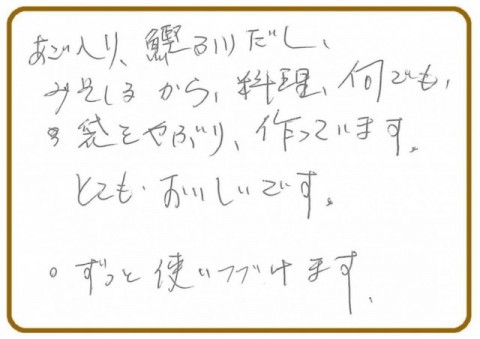 あご入り、鰹ふりだし、
みそしるから、料理、何でも、
○袋をやぶり、作っています。
とてもおいしいです。
○ずっと使いつづけます。